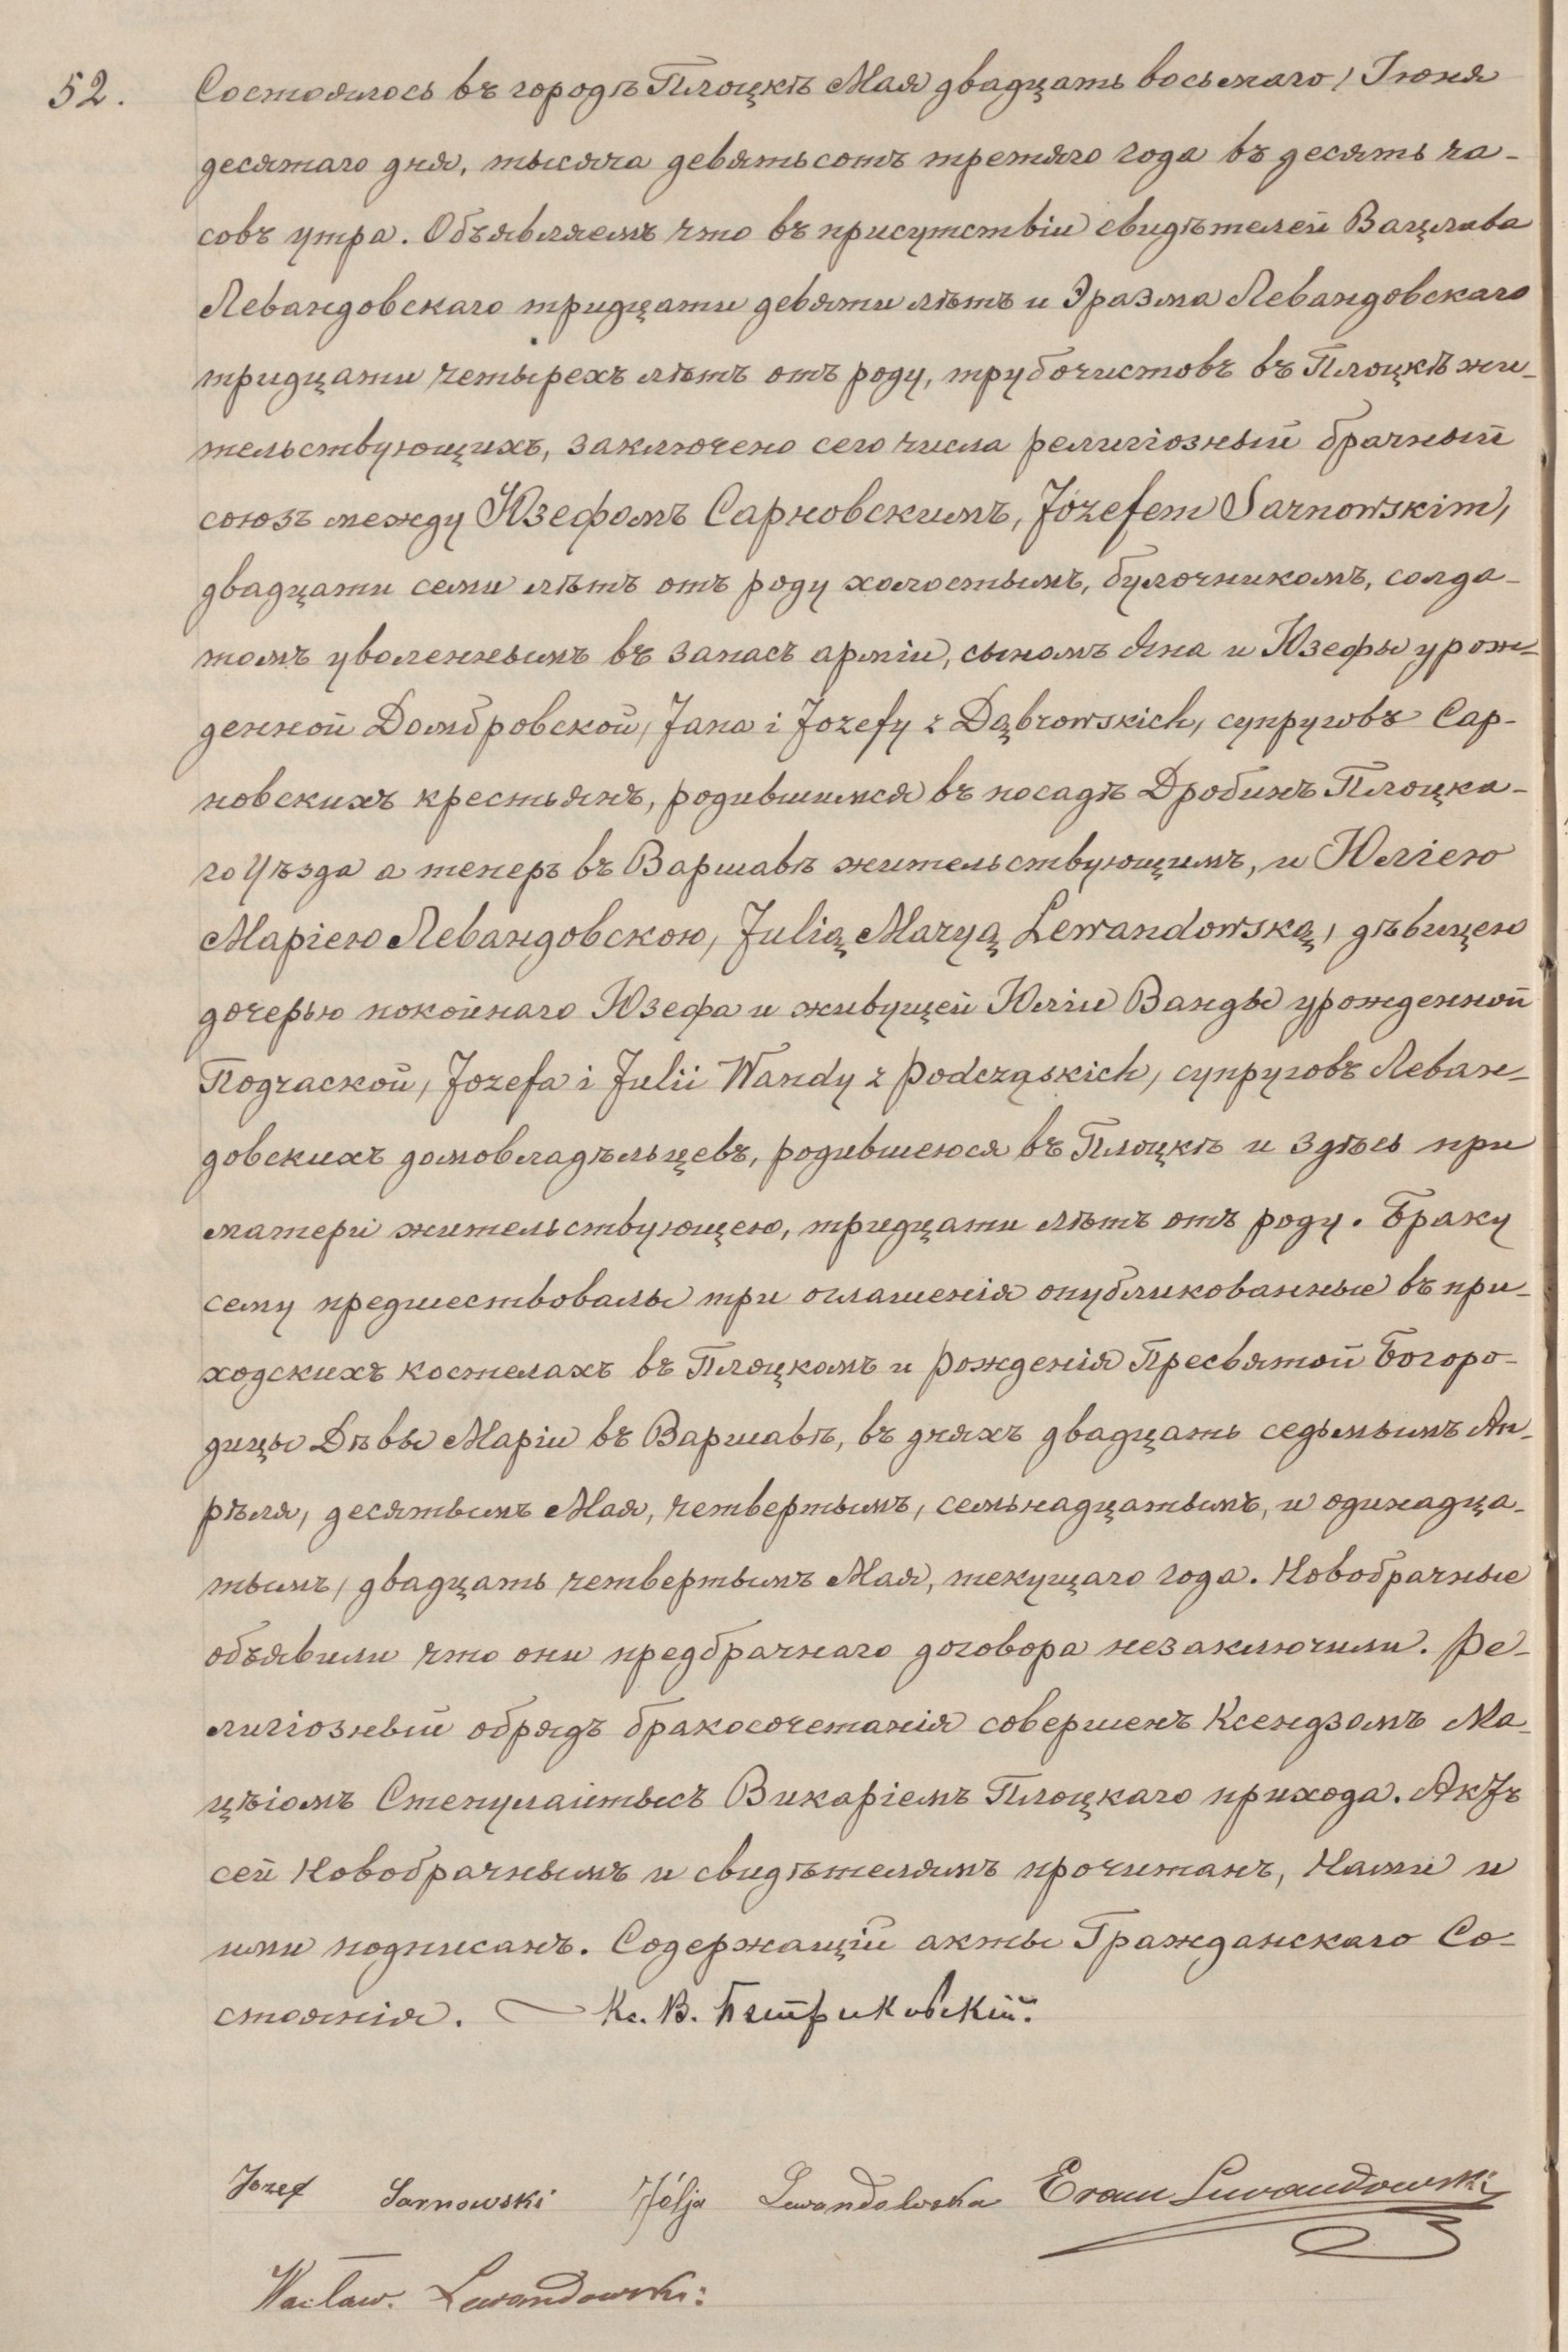 52. Состоялось въ городѣ Плоцкѣ Мая двадцать восьмаго / Іюня
десятаго дня, тысяча девятьсотъ третяго года въ десять ча-
совъ утра. Объявляемъ что въ присутствіи свидѣтелей Вацлава
Левандовскаго тридцати девяти лѣтъ и Эразма Левандовскаго
тридцати четырехъ лѣтъ отъ роду, трубочистовъ въ Плоцкѣ жи-
тельствующихъ, заключено сего числа религіозный брачный
союзъ между Юзефомъ Сарновскимъ, Józefem Sarnowskim,
двадцати семи лѣтъ отъ роду холостымъ, булочникомъ, солда-
томъ уволеннымъ въ запасъ арміи, сыномъ Яна и Юзефы урож-
денной Домбровской, Jana i Jozefy z Dąbrowskich, супруговъ Сар-
новскихъ крестьянъ, родившимся въ посадѣ Дробинъ Плоцка-
го Уѣзда а теперь въ Варшавѣ жительствующимъ, и Юліею
Маріею Левандовскою, Julią Maryą Lewandowską, дѣвицею
дочерью покойнаго Юзефа и живущей Юліи Ванды урожденной
Подчаской, Jozefa i Julii Wandy z Podcząskich, супруговъ Леван-
довскихъ домовладѣльцевъ, родившеюся въ Плоцкѣ и здѣсь при
матери жительствующею, тридцати лѣтъ отъ роду. Браку
сему предшествовалы три оглашенія опубликованные въ при-
ходскихъ костелахъ въ Плоцкомъ и Рожденія Пресвятой Богоро-
дицы Дѣвы Маріи въ Варшавѣ, въ дняхъ двадцать седьмымъ Ап-
рѣля, десятымъ Мая, четвертымъ, семьнадцатымъ, и одинадца-
тымъ, двадцать четвертымъ Мая, текущаго года. Новобрачные
объявили что они предбрачнаго договора незаключили. Ре-
лигіозный обрядъ бракосочетанія совершенъ Ксендзомъ Ма-
цѣіомъ Степулайтысъ Викаріемъ Плоцкаго прихода. Актъ
сей Новобрачнымъ и свидѣтелямъ прочитанъ, Нами и
ими подписанъ. Содержащій акты Гражданскаго Со-
стоянія. — Кс. В. Петриковскій.
Jozef Sarnowski Jólja Lewandowska Erazm Lewandowski
Wacław. Lewandowski: